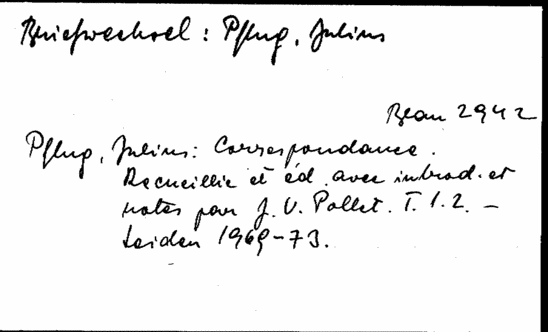 Briefwechsel: Pflug, Julius
Bean 2942
Pflug, Julius: Correspondance.
Recueillie et éd. avec introd. et
notes par J. V. Pollet. T. 1.2. –
Leiden 1969-73.